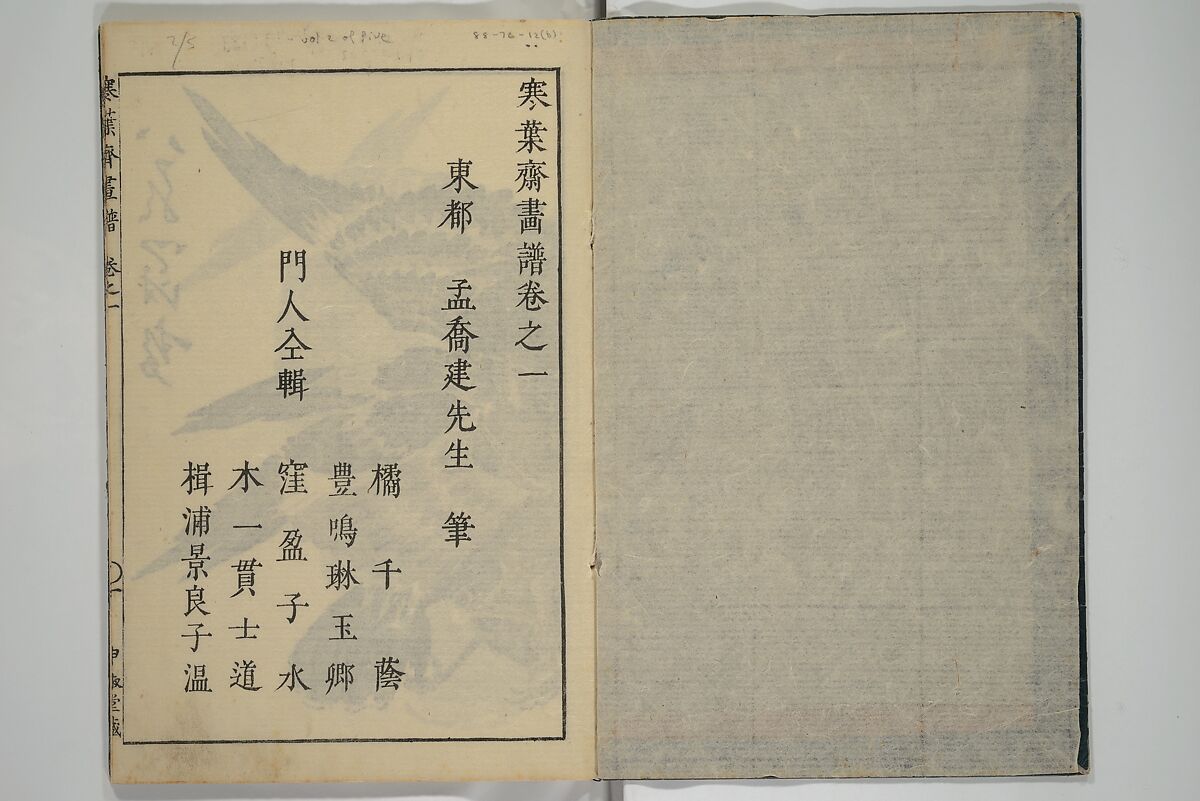 寒葉齋畫譜卷之一
東都 孟喬建先生 筆
門人仝輯
橘千蔭
豊鳴琳玉卿
窪盈子水
木一貫士道
楫浦景良子温
寒葉齋畫譜 卷之一
〇一
2/5
vol 2 of five